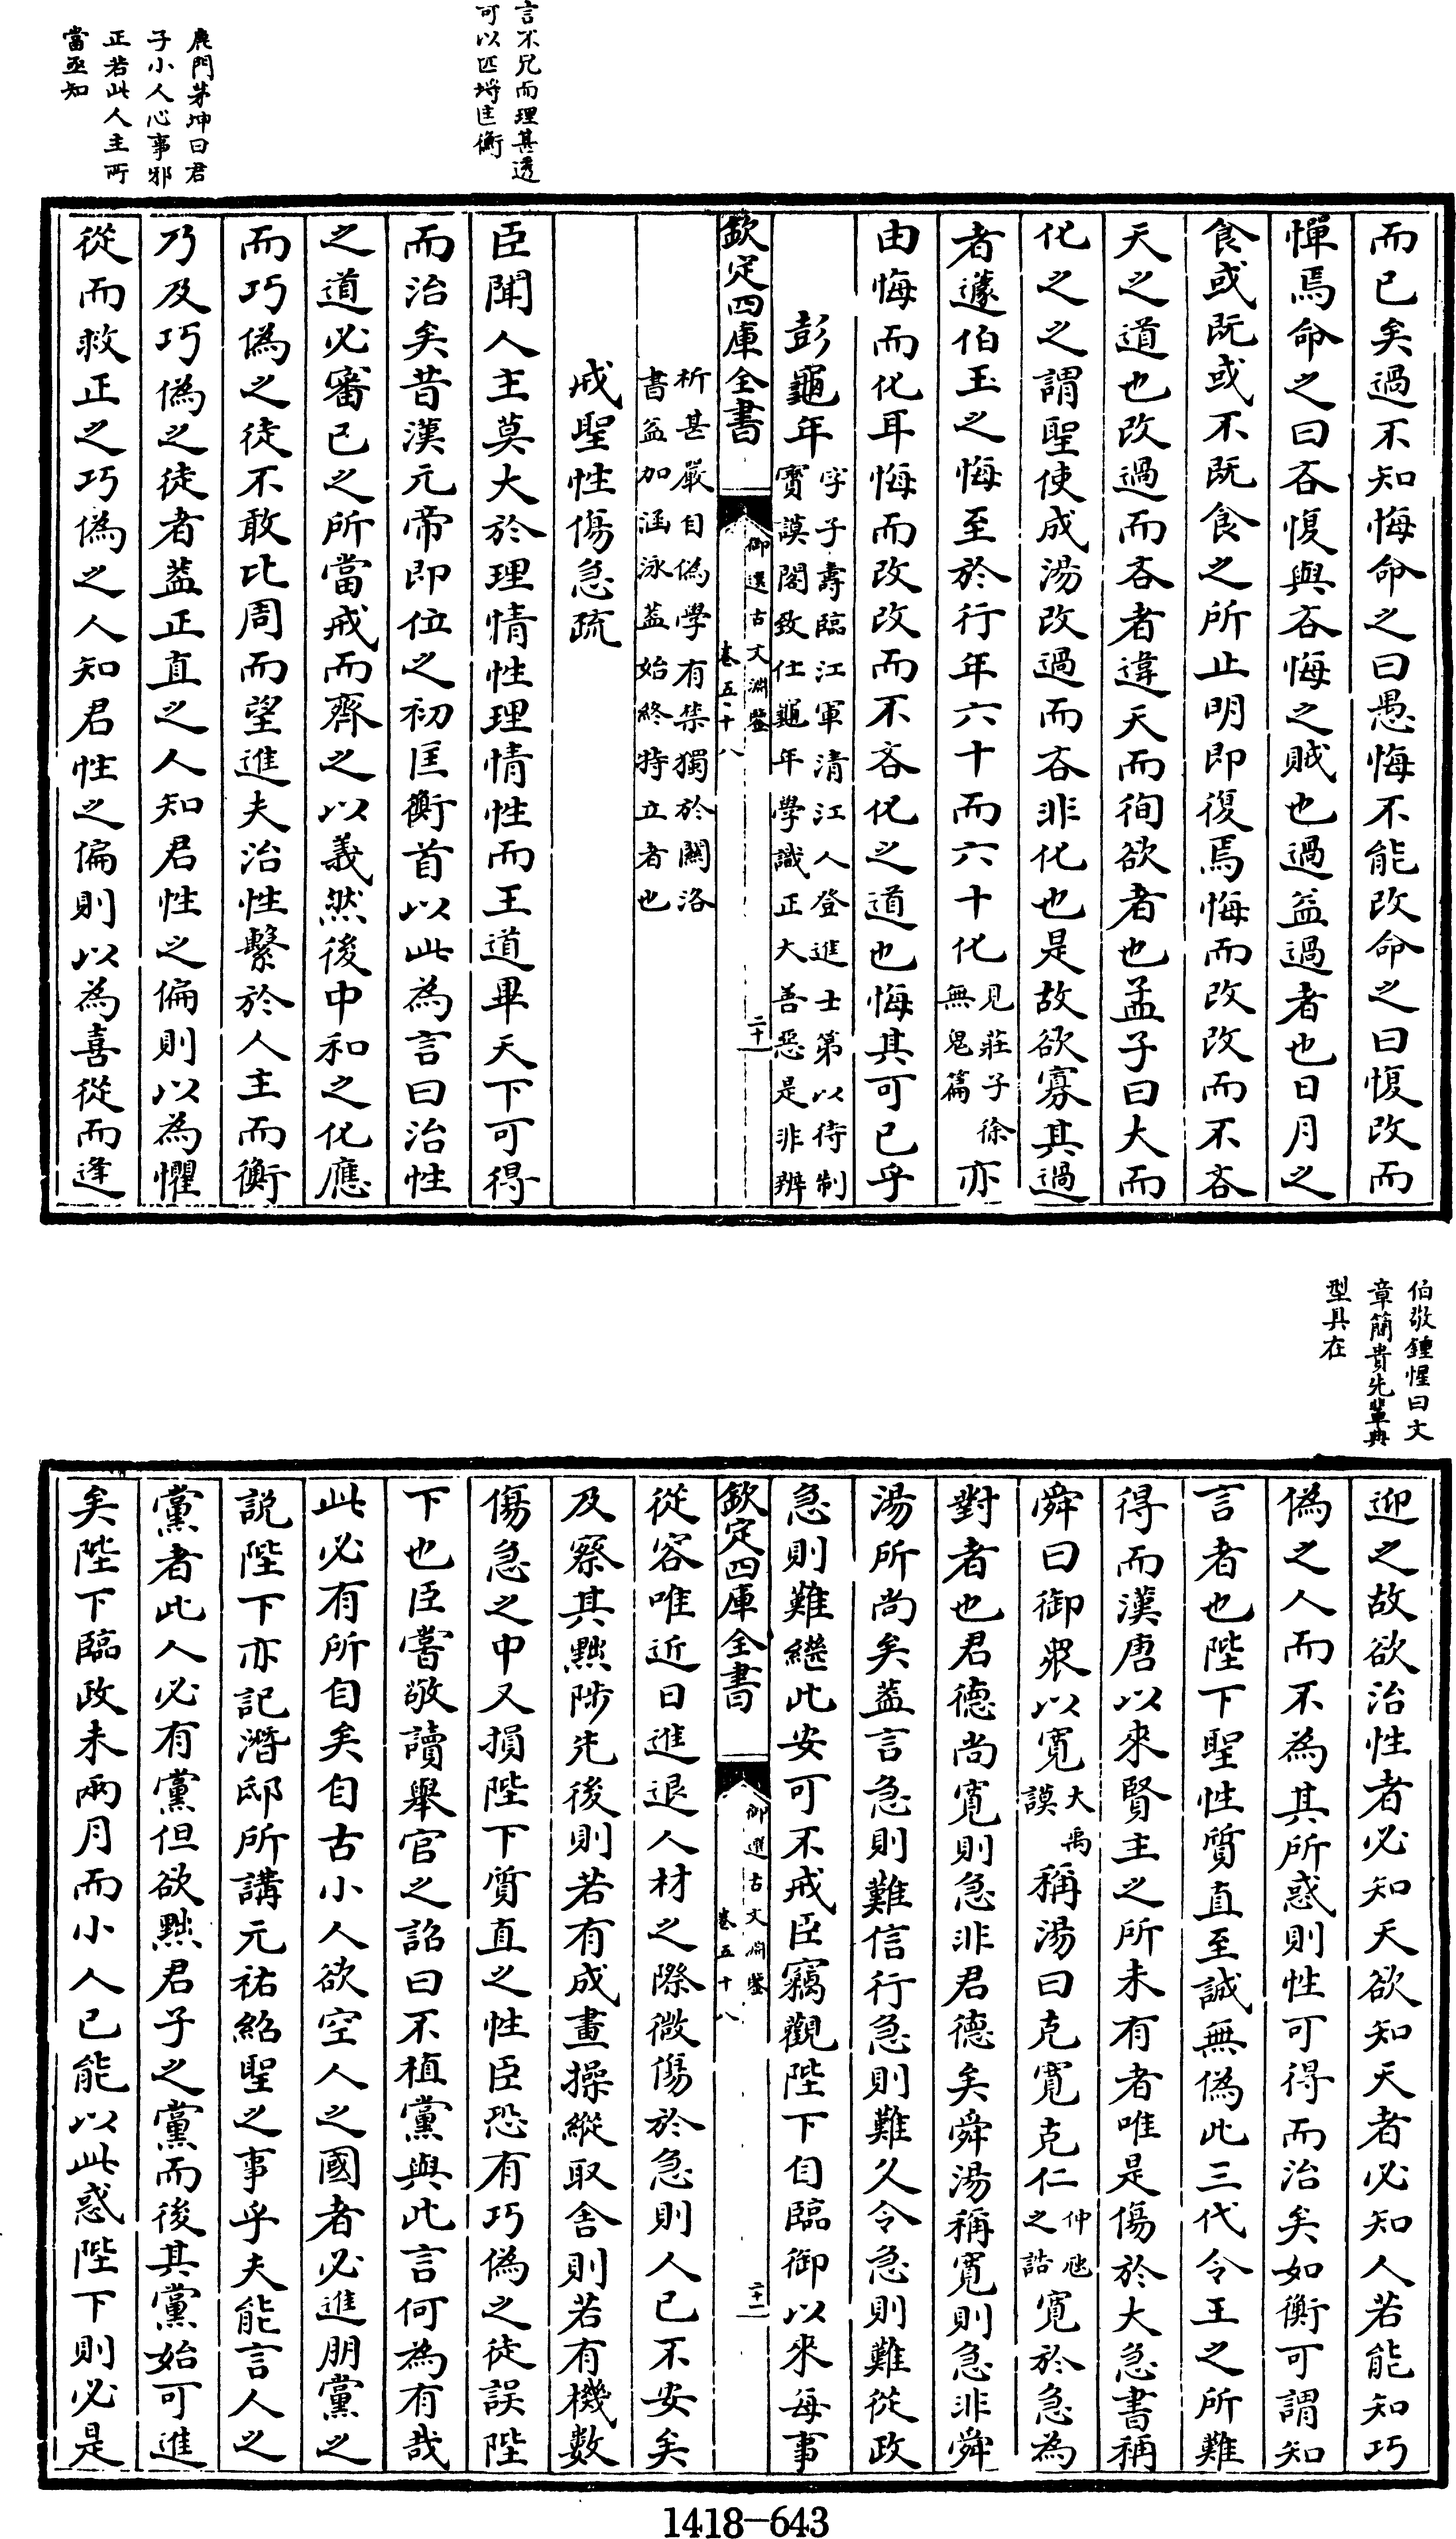 言不冗而理甚透
可以匹埒匡衡
鹿門茅坤曰君
子小人心事邪
正若此人主所
當亟知
而已矣過不知悔命之曰愚悔不能改命之曰愎改而
憚焉命之曰吝愎與吝悔之賊也過益過者也日月之
食或既或不既食之所止明即復焉悔而改改而不吝
天之道也改過而吝者違天而徇欲者也孟子曰大而
化之之謂聖使成湯改過而吝非化也是故欲寡其過
者蘧伯玉之悔至於行年六十而六十化見莊子徐無鬼篇亦
由悔而化耳悔而改改而不吝化之道也悔其可已乎
彭龜年字子壽臨江軍清江人登進士第以待制寶謨閣致仕龜年學識正大善惡是非辨
欽定四庫全書
御選古文淵鑒
卷五十八
二十
析甚嚴自偽學有禁獨於關洛
書益加涵泳蓋始終特立者也
戒聖性傷急疏
臣聞人主莫大於理情性理情性而王道畢天下可得
而治矣昔漢元帝即位之初匡衡首以此為言曰治性
之道必審已之所當戒而齊之以義然後中和之化應
而巧偽之徒不敢比周而望進夫治性繫於人主而衡
乃及巧偽之徒者蓋正直之人知君性之偏則以為懼
從而救正之巧偽之人知君性之偏則以為喜從而逢
伯敬鍾惺曰文
章簡貴先輩典
型具在
迎之故欲治性者必知天欲知天者必知人若能知巧
偽之人而不為其所惑則性可得而治矣如衡可謂知
言者也陛下聖性質直至誠無偽此三代令王之所難
得而漢唐以來賢主之所未有者唯是傷於大急書稱
舜曰御衆以寬大禹謨稱湯曰克寬克仁仲虺之誥寬於急為
對者也君德尚寬則急非君德矣舜湯稱寬則急非舜
湯所尚矣蓋言急則難信行急則難久令急則難從政
急則難繼此安可不戒臣竊觀陛下自臨御以來每事
欽定四庫全書
御選古文淵鑒
卷五十八
二十一
從容唯近日進退人材之際微傷於急則人已不安矣
及察其黜陟先後則若有成畫操縱取舍則若有機數
傷急之中又損陛下質直之性臣恐有巧偽之徒誤陛
下也臣嘗敬讀舉官之詔曰不植黨與此言何為有哉
此必有所自矣自古小人欲空人之國者必進朋黨之
説陛下亦記潛邸所講元祐紹聖之事乎夫能言人之
黨者此人必有黨但欲黜君子之黨而後其黨始可進
矣陛下臨政未兩月而小人已能以此惑陛下則必是
1418—643